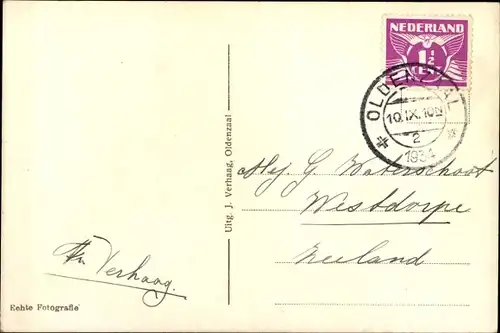 NEDERLAND
1½
CENT
OLDENZAAL
10.IX.10N
2
1934
Uitg. J. Verhaag, Oldenzaal
Mej. G. Waterschoot
Westdorpe
Zeeland
Verhaag.
Echte Fotografie